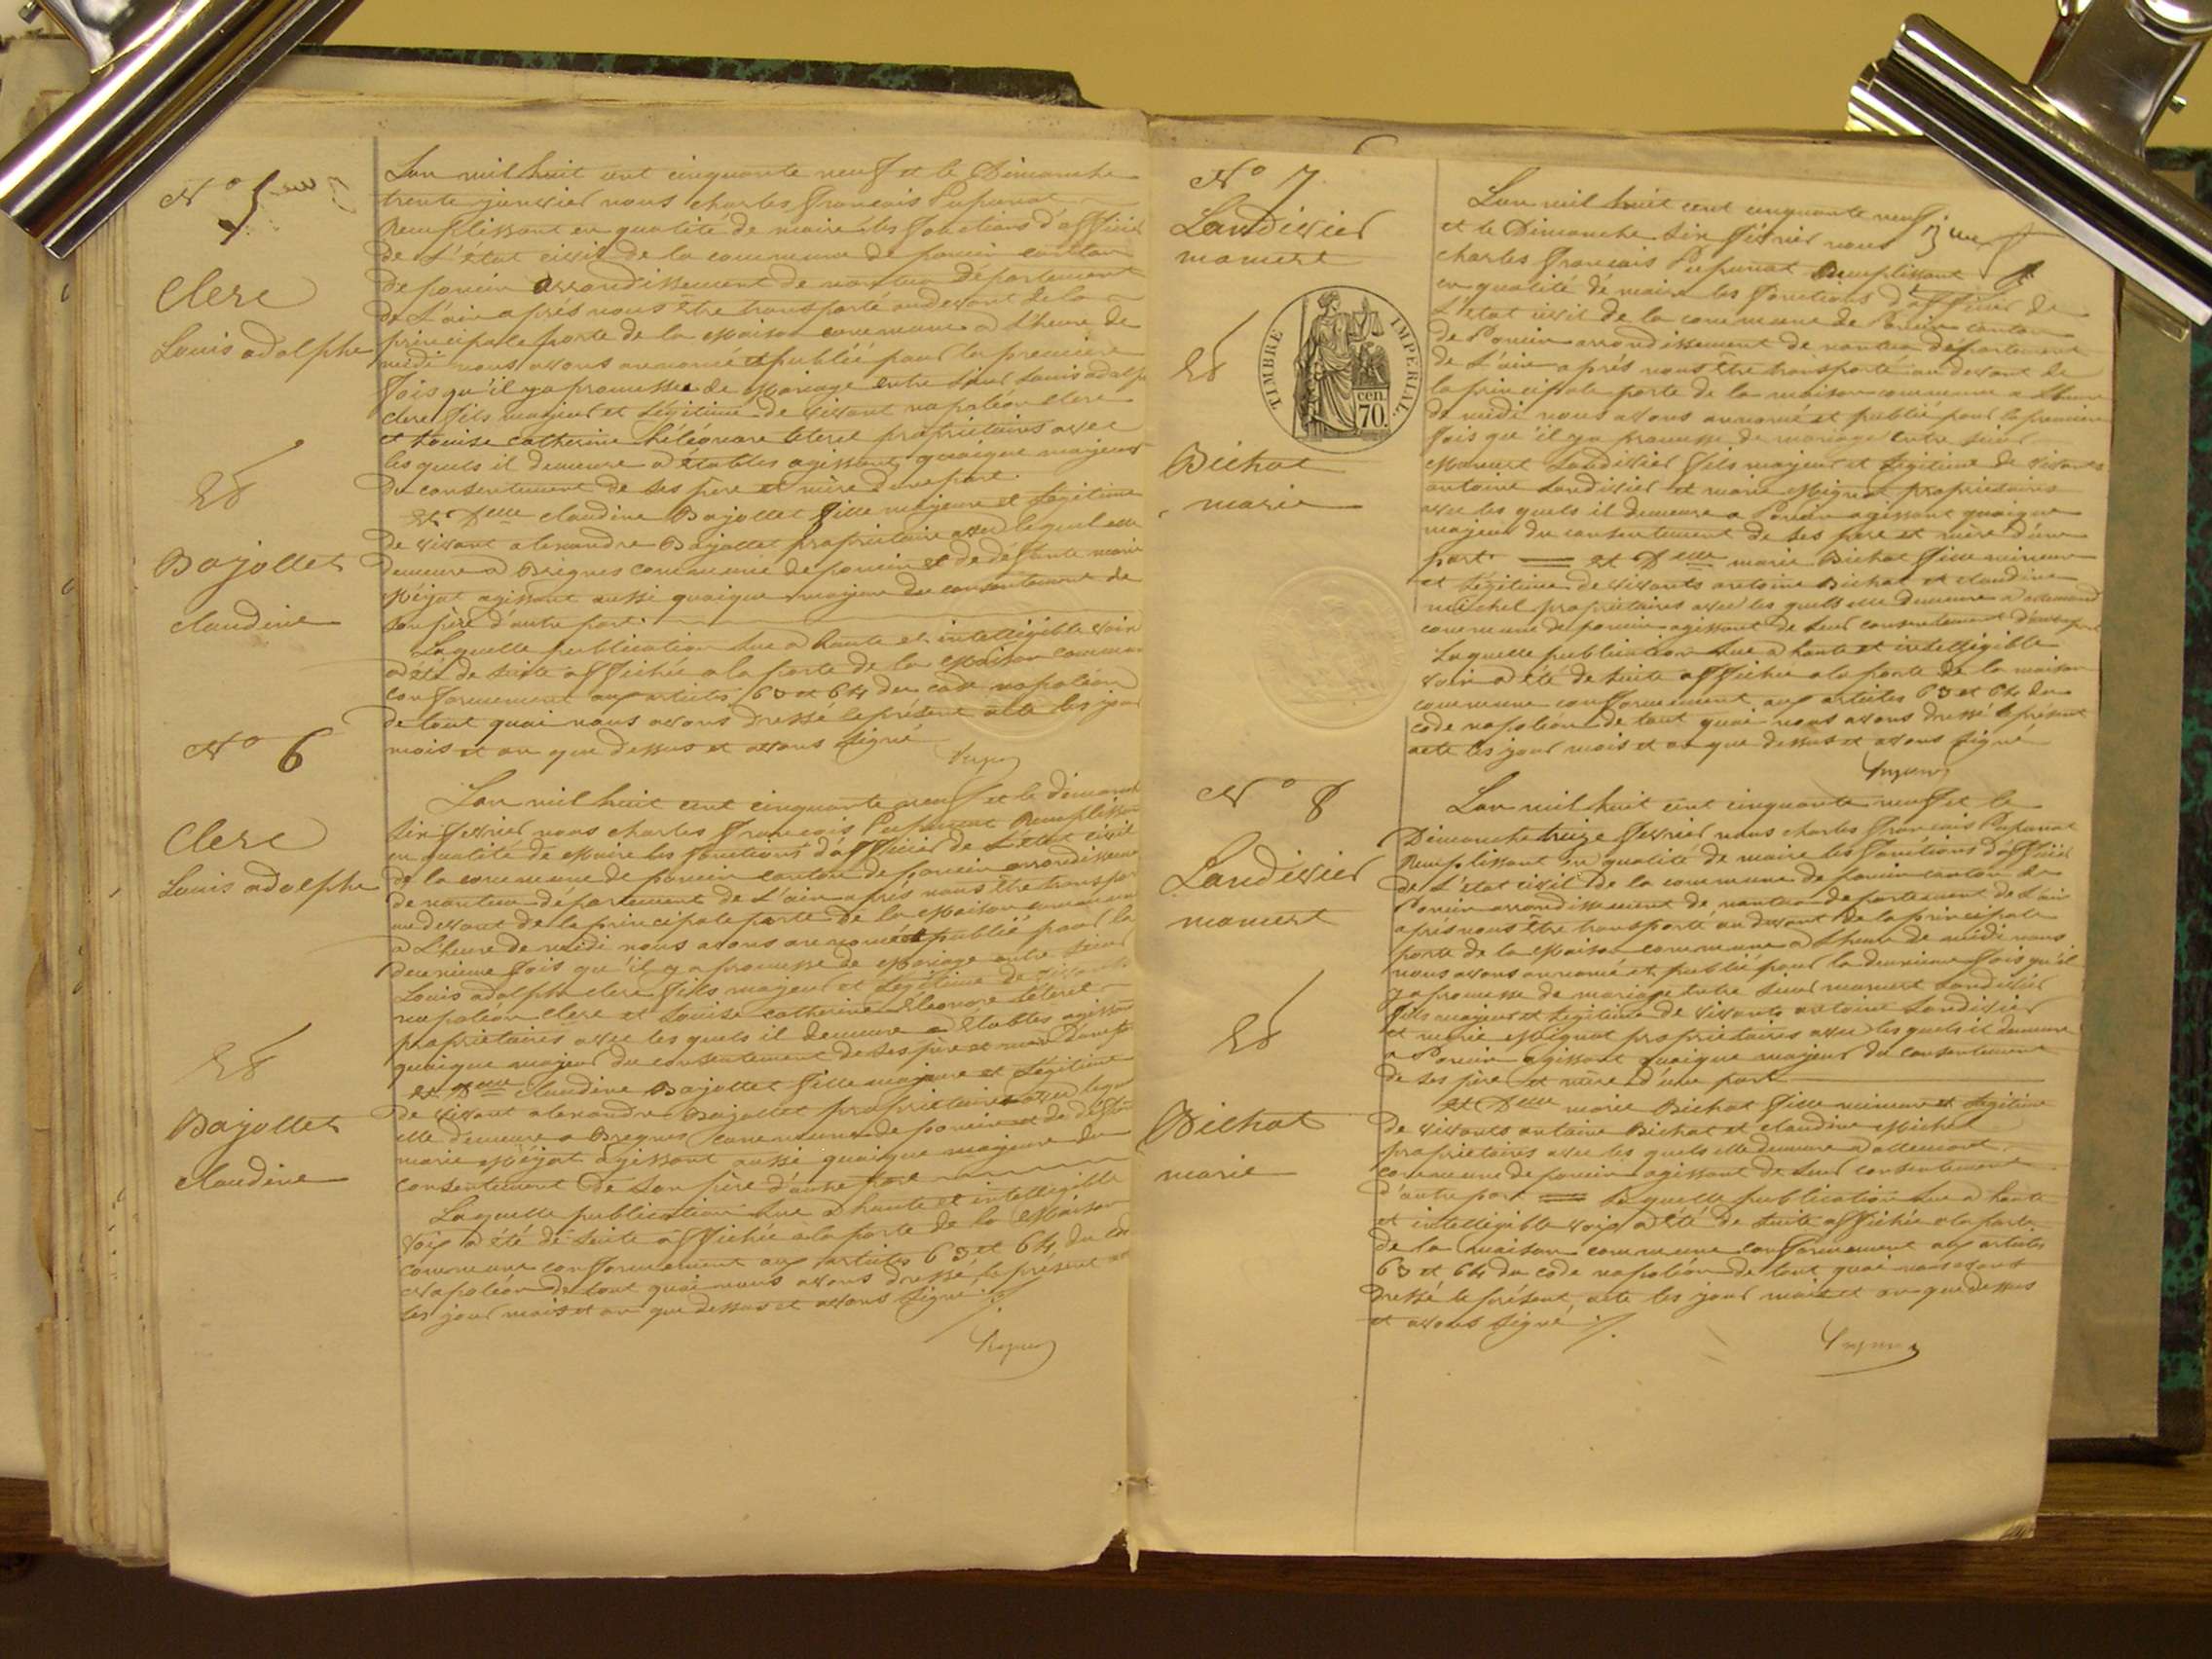 N° 5
Clerc
Louis adolphe
Et
Bajollet
claudine
L'an mil huit cent cinquante neuf et le Dimanche
trente janvier nous charles francois Pupunat
Remplissant en qualité de maire les fonctions d'officier
de L'état civil de la commune de poncin canton
de poncin arrondissement de nantua département
de L'ain après nous être transporté audevant de la
principale porte de la Maison commune a L'heure de
midi nous avons annoncé et publié pour la premiere
fois qu'il y a promesse de Mariage entre sieur Louis adolphe
clerc fils majeur et légitime de vivant napoléon clerc
et Louise catherine héléonore propriétaires avec
les quels il demeure a étables agissant quoique majeur
du consentement de ses père et mère d'une part.
Et Delle claudine Bajollet fille majeure et légitime
de vivant alexandre Bajollet propriétaire avec lequel elle
demeure a commune de poncin et de défunte marie
agissant aussi quoique majeure du consentement de
son père d'autre part
Laquelle publication lue a haute et intelligible voix
a été de suite affichée a la porte de la Maison commune
conformement aux articles 63 et 64 du code napoléon
de tout quoi nous avons dressé le présent acte les jour
mois et an que dessus et avons signé
N° 6
Clerc
Louis adolphe
Et
Bajollet
claudine
L'an mil huit cent cinquante neuf et le dimanche
six fevrier nous charles francois Pupunat Remplissant
en qualité de Maire les fonctions d'officier de L'état civil
de la commune de poncin canton de poncin arrondissement
de nantua département de L'ain après nous être transporté
audevant de la principale porte de la Maison commune
a L'heure de midi nous avons annoncé et publié pour la
deuxieme fois qu'il y a promesse de Mariage entre sieur
Louis adolphe clerc fils majeur et légitime de vivants
napoléon clerc et Louise catherine éléonore
propriétaires avec les quels il demeure a étables agissant
quoique majeur du consentement de ses père et mère d'une part
Et Delle claudine Bajollet fille majeure et légitime
de vivant alexandre Bajollet propriétaire avec lequel
elle demeure a commune de poncin et de défunte
marie agissant aussi quoique majeure du
consentement de son père d'autre part
Laquelle publication lue a haute et intelligible
voix a été de suite affichée a la porte de la Maison
commune conformement aux articles 63 et 64 du code
napoléon de tout quoi nous avons dressé le présent acte
les jour mois et an que dessus et avons signé
N° 7
Landivier
mamert
Et
TIMBRE IMPERIAL.
70. cen
Bichat
marie
L'an mil huit cent cinquante neuf
et le Dimanche six février nous
charles francois Pupunat Remplissant
en qualité de maire les fonctions d'officier de
L'état civil de la commune de Poncin canton
de Poncin arrondissement de nantua département
de L'ain après nous être transporté au devant de
la principale porte de la maison commune a L'heure
de midi nous avons annoncé et publié pour la premiere
fois qu'il y a promesse de mariage entre sieur
Mamert Landivier fils majeur et légitime de vivants
antoine Landivier et marie Mignat propriétaires
avec les quels il demeure a Poncin agissant quoique
majeur du consentement de ses père et mère d'une
part. Et Delle marie Bichat fille mineure
et légitime de vivants antoine Bichat et claudine
michel propriétaires avec les quels elle demeure a
commune de poncin agissant de leur consentement d'autre part
Laquelle publication lue a haute et intelligible
voix a été de suite affichée a la porte de la maison
commune conformement aux articles 63 et 64 du
code napoléon de tout quoi nous avons dressé le présent
acte les jour mois et an que dessus et avons signé
N° 8
Landivier
mamert
Et
Bichat
marie
L'an mil huit cent cinquante neuf et le
Dimanche treize fevrier nous charles francois Pupunat
Remplissant en qualité de maire les fonctions d'officier
de L'état civil de la commune de poncin canton de
Poncin arrondissement de nantua département de L'ain
après nous être transporté au devant de la principale
porte de la Maison commune a L'heure de midi nous
nous avons annoncé et publié pour la deuxieme fois qu'il
y a promesse de mariage entre sieur mamert Landivier
fils majeur et légitime de vivants antoine Landivier
et marie Mignat propriétaires avec les quels il demeure
a Poncin agissant quoique majeur du consentement
de ses père et mère d'une part
Et Delle marie Bichat fille mineure et légitime
de vivants antoine Bichat et claudine Michel
propriétaires avec les quels elle demeure a allement
commune de poncin agissant de leur consentement
d'autre part. Laquelle publication lue a haute
et intelligible voix a été de suite affichée a la porte
de la maison commune conformement aux articles
63 et 64 du code napoléon de tout quoi nous avons
dressé le présent acte les jour mois et an que dessus
et avons signé